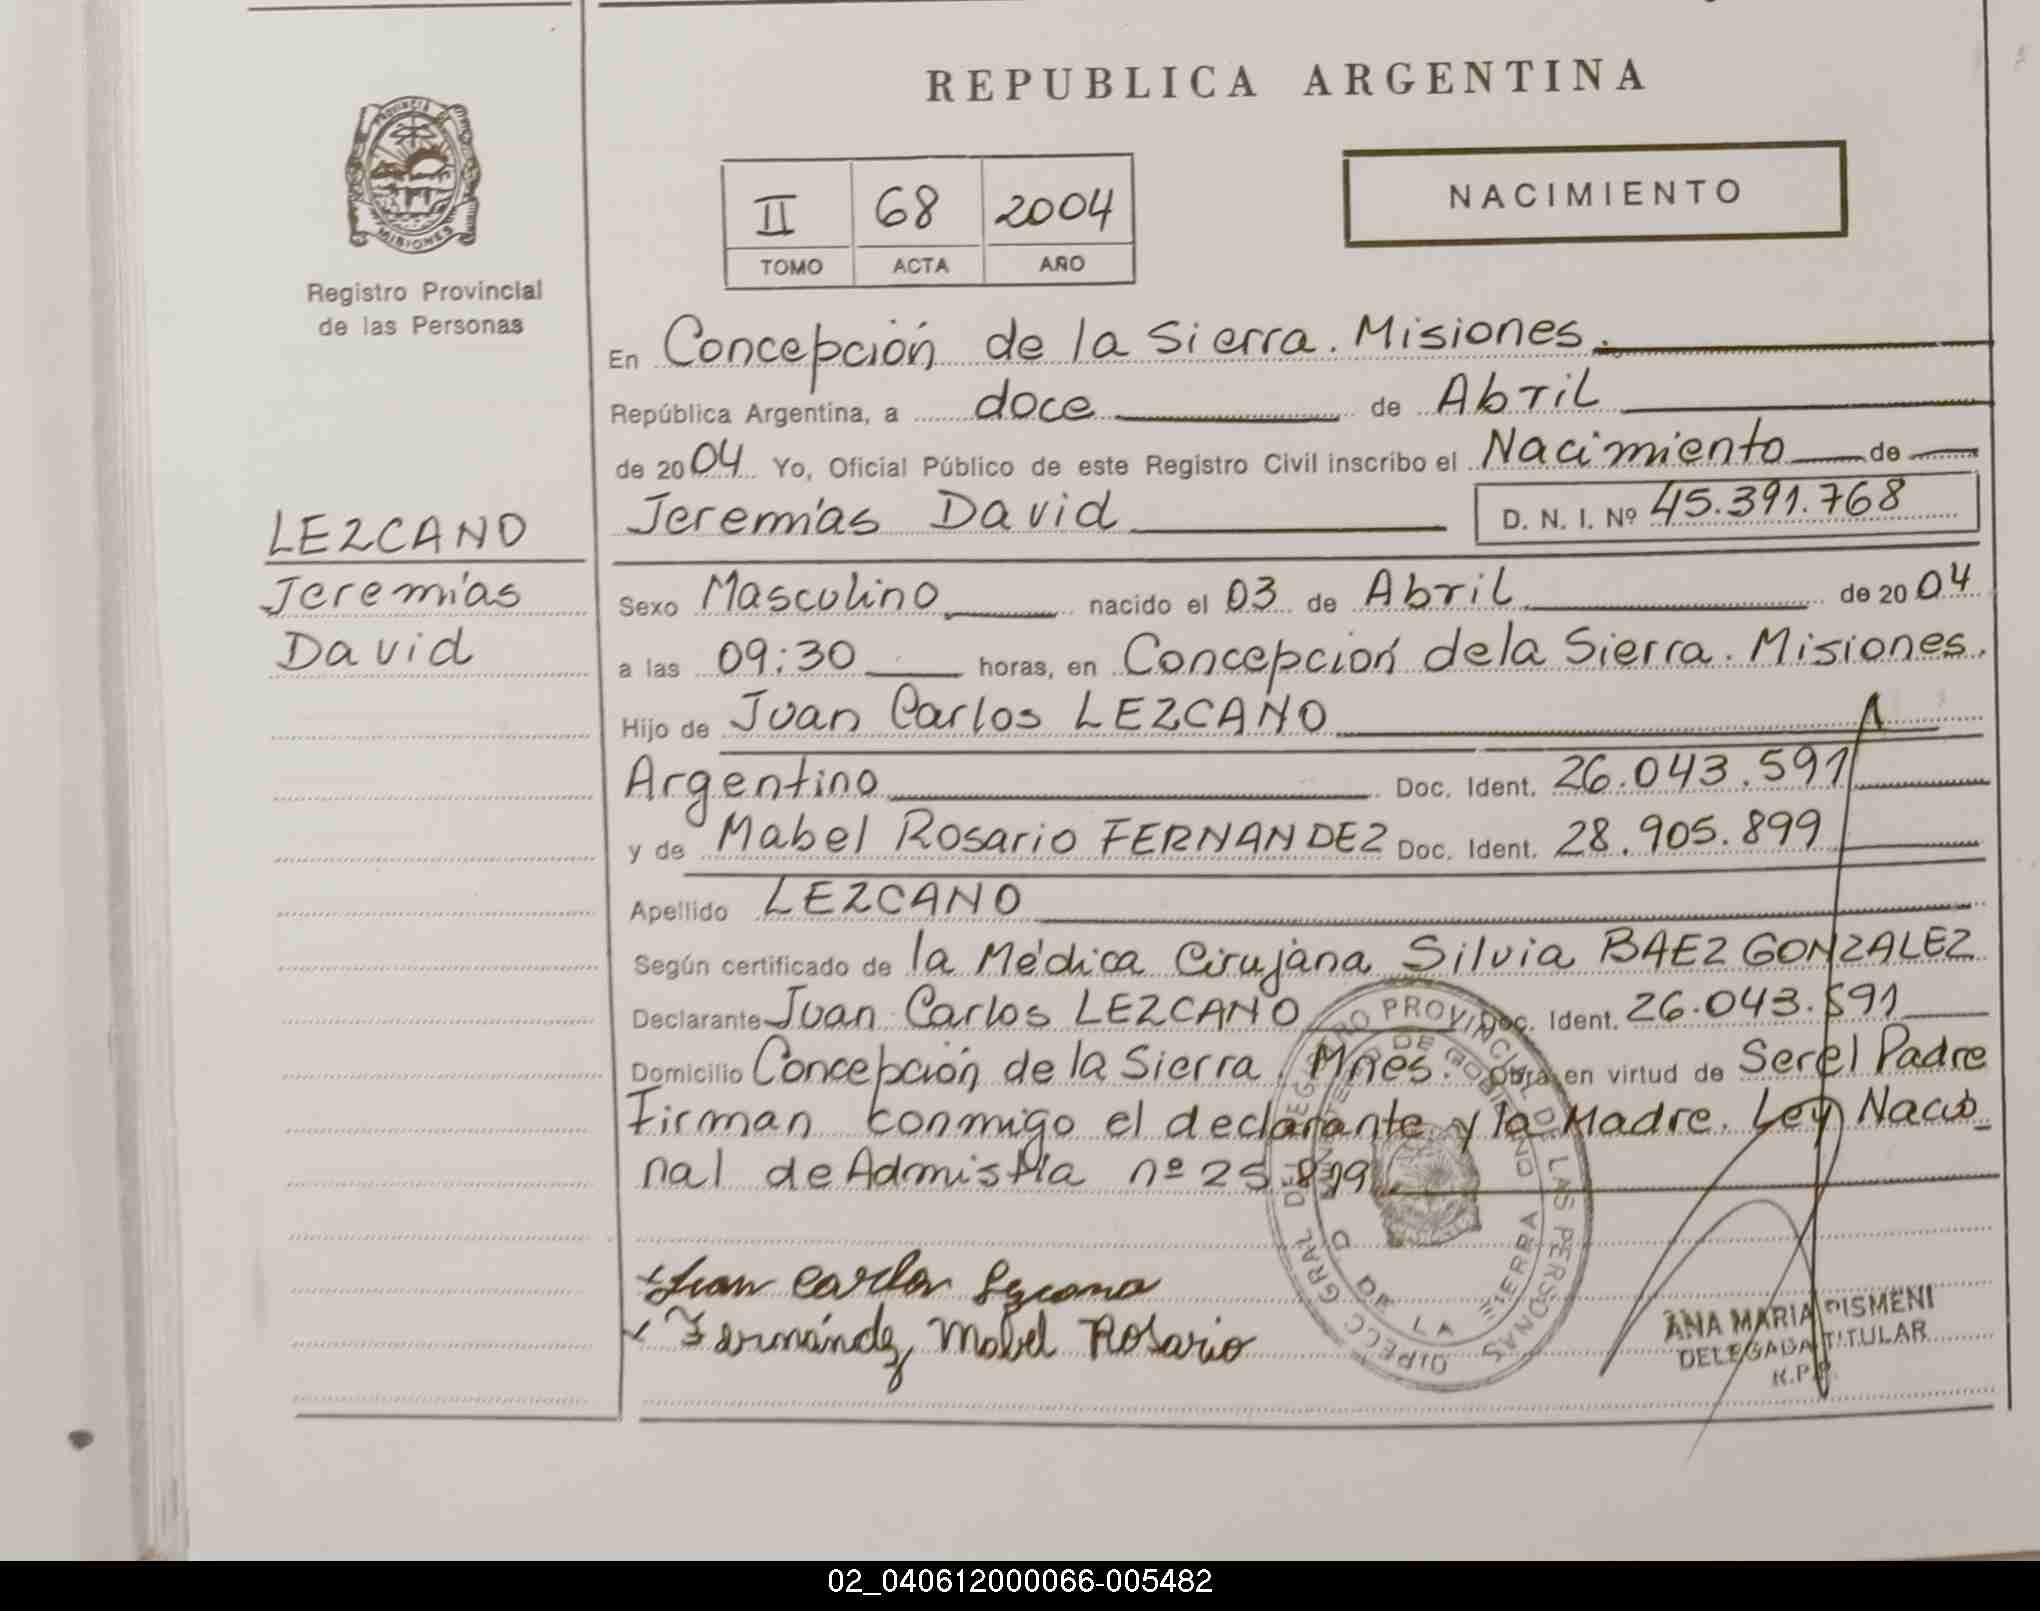 REPUBLICA ARGENTINA
PROVINCIA DE
MISIONES
Registro Provincial
de las Personas
II 68 2004
TOMO ACTA AÑO
NACIMIENTO
En Concepción de la Sierra. Misiones.
República Argentina, a doce de Abril
de 2004 Yo, Oficial Público de este Registro Civil inscribo el Nacimiento de
LEZCANO
Jeremías
David
Jeremías David D. N. I. Nº 45.391.768
Sexo Masculino nacido el 03 de Abril de 2004
a las 09:30 horas, en Concepción de la Sierra. Misiones.
Hijo de Juan Carlos LEZCANO
Argentino Doc. Ident. 26.043.591
y de Mabel Rosario FERNANDEZ Doc. Ident. 28.905.899
Apellido LEZCANO
Según certificado de la Médica Cirujana Silvia BAEZ GONZALEZ
Declarante Juan Carlos LEZCANO Doc. Ident. 26.043.591
Domicilio Concepción de la Sierra. Mnes. Obra en virtud de Ser el Padre
Firman conmigo el declarante y la Madre. Ley Nacio_
nal de Admistía nº 25.819.
DIRECC GRAL DEL REGISTRO PROVINCIAL DE LAS PERSONAS
DE GOBIERNO
LA SIERRA
Juan Carlos Lezcano
Fernández Mabel Rosario
ANA MARIA PISMENI
DELEGADA TITULAR
R.P.P.
02_040612000066-005482